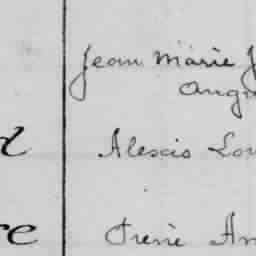 Jean Marie J
Augu
Alexis Lou
re Irené An